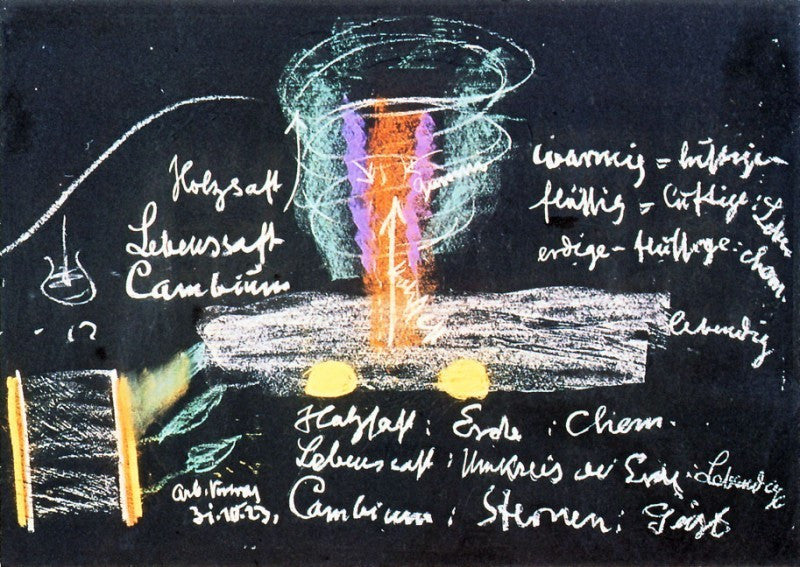 Holzsaft
Lebenssaft
Cambium
flüssig = luftige: Leben
erdige - flüssige: chem.
lebendig
Holzsaft : Erde : Chem.
Lebenssaft : Umkreis der Erde : Lebendige
Cambium : Sternen : Geist
Arb. Vortrag